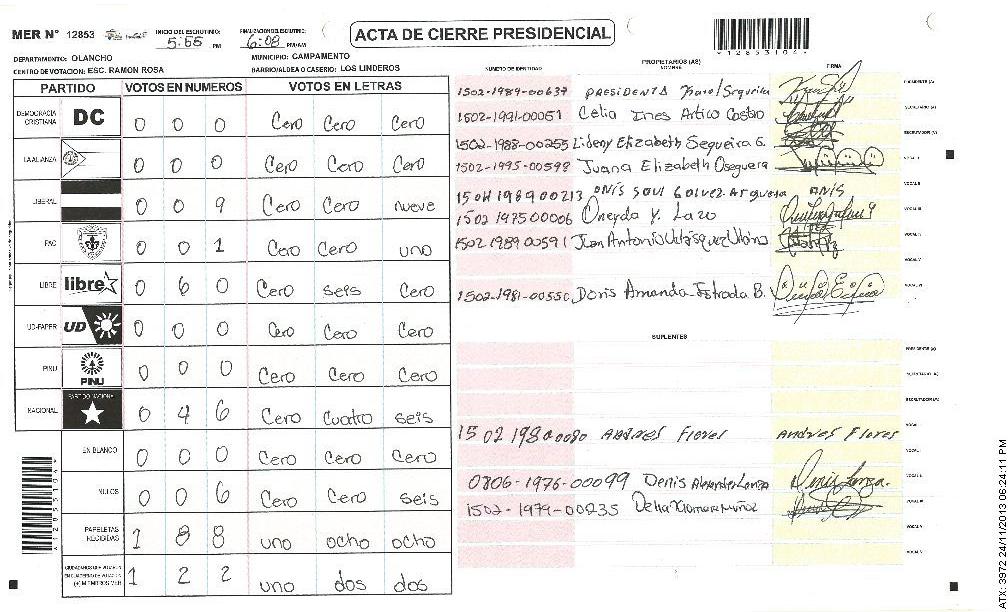 MER N° 12853
INICIO DEL ESCRUTINIO: 5:55 PM
FINALIZACION DEL ESCRUTINIO: 6:08 PM/AM
ACTA DE CIERRE PRESIDENCIAL
12853104
DEPARTAMENTO: OLANCHO
MUNICIPIO: CAMPAMENTO
CENTRO DE VOTACION: ESC. RAMON ROSA
BARRIO/ALDEA O CASERIO: LOS LINDEROS
PARTIDO VOTOS EN NUMEROS VOTOS EN LETRAS
DEMOCRACIA CRISTIANA DC 0 0 0 Cero Cero Cero
LA ALIANZA 0 0 0 Cero Cero Cero
LIBERAL 0 0 9 Cero Cero nueve
PAC 0 0 1 Cero Cero uno
LIBRE libre 0 6 0 Cero seis Cero
UD-FAPER UD 0 0 0 Cero Cero Cero
PINU PINU 0 0 0 Cero Cero Cero
NACIONAL PARTIDO NACIONAL 0 4 6 Cero Cuatro seis
EN BLANCO 0 0 0 Cero Cero Cero
NULOS 0 0 6 Cero Cero seis
PAPELETAS RECIBIDAS 1 8 8 uno ocho ocho
CIUDADANOS QUE VOTARON EN CUADERNO DE VOTACION (+) MIEMBROS MER 1 2 2 uno dos dos
NUMERO DE IDENTIDAD PROPIETARIOS (AS) NOMBRE FIRMA
1502-1989-00637 PRESIDENTA Karol Segueira PRESIDENTE (A)
1502-1991-00051 Celia Ines Artica Castro SECRETARIO (A)
1502-1988-00255 Lideny Elizabeth Segueira G. ESCRUTADOR (A)
1502-1995-00598 Juana Elizabeth Oseguera VOCAL I
1504 1989 00213 ONÍS SAUL GALVEZ Argueta ONÍS VOCAL II
1502 1975 00006 Oneyda Y. Lazo VOCAL III
1502-1989 00591 Juan Antonio Velásquez VOCAL IV
VOCAL V
1502-1981-00550 Doris Amanda Estrada B. VOCAL VI
SUPLENTES
PRESIDENTE (A)
SECRETARIO (A)
ESCRUTADOR (A)
1502 1980 0080 ANDRES Flores Andres Flores VOCAL I
0806-1976-00099 Denis Alexander Lanza Denis Lanza.
1502-1979-00235 Delia Xiomara Muñoz
VOCAL V
ATX: 3972 24/11/2013 06:24:11 PM